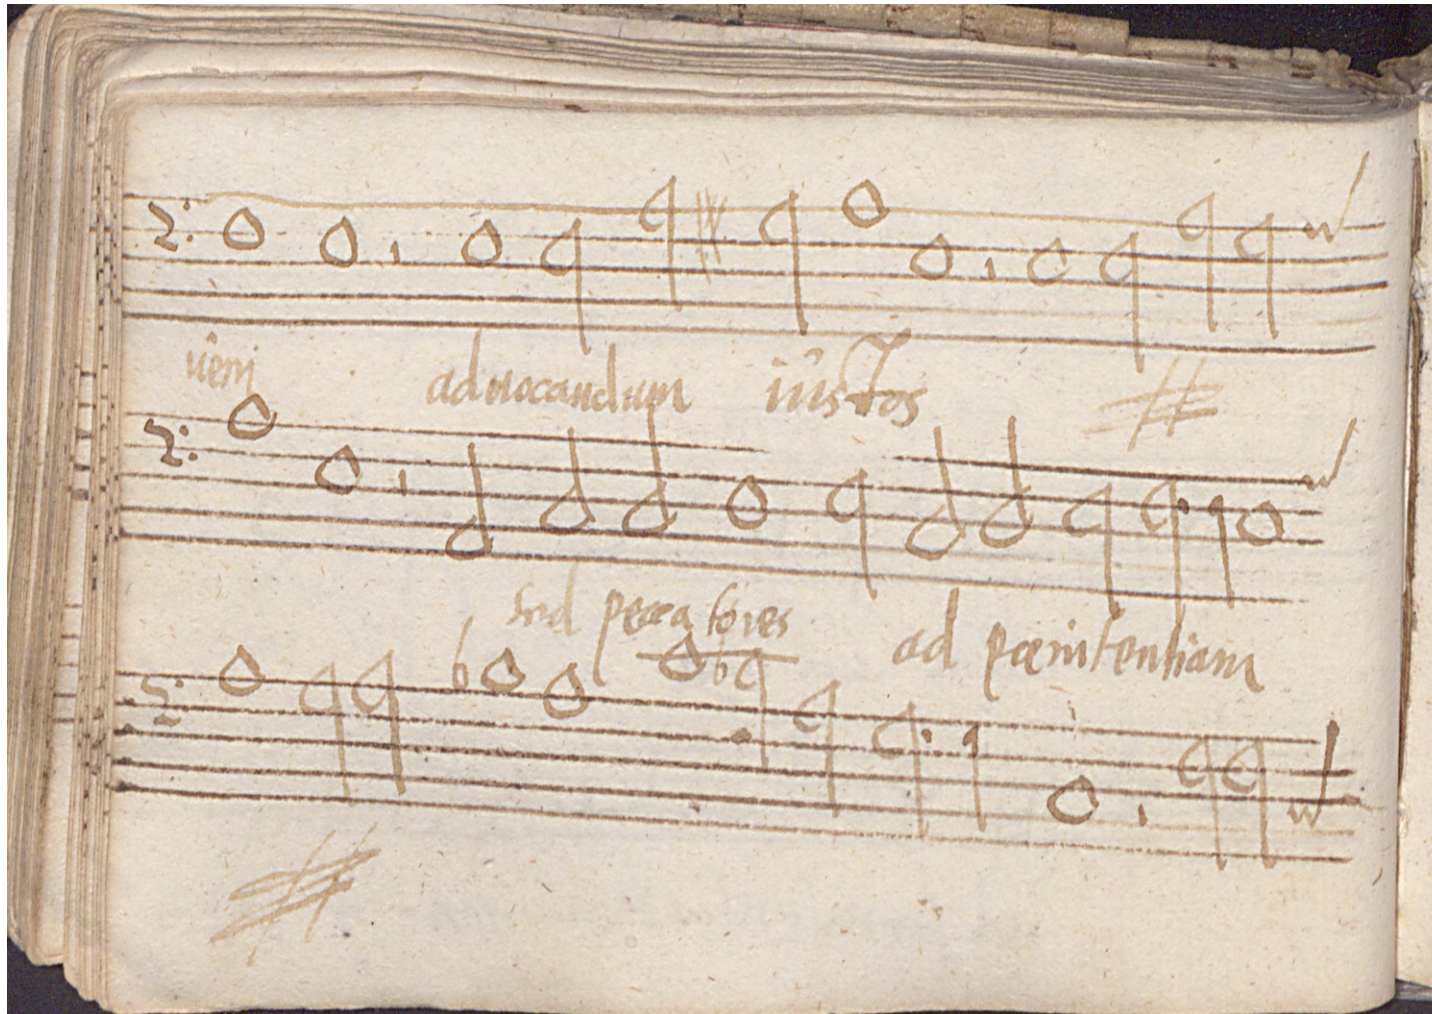 veni ad vocandum iustos
sed peccatores ad pœnitentiam